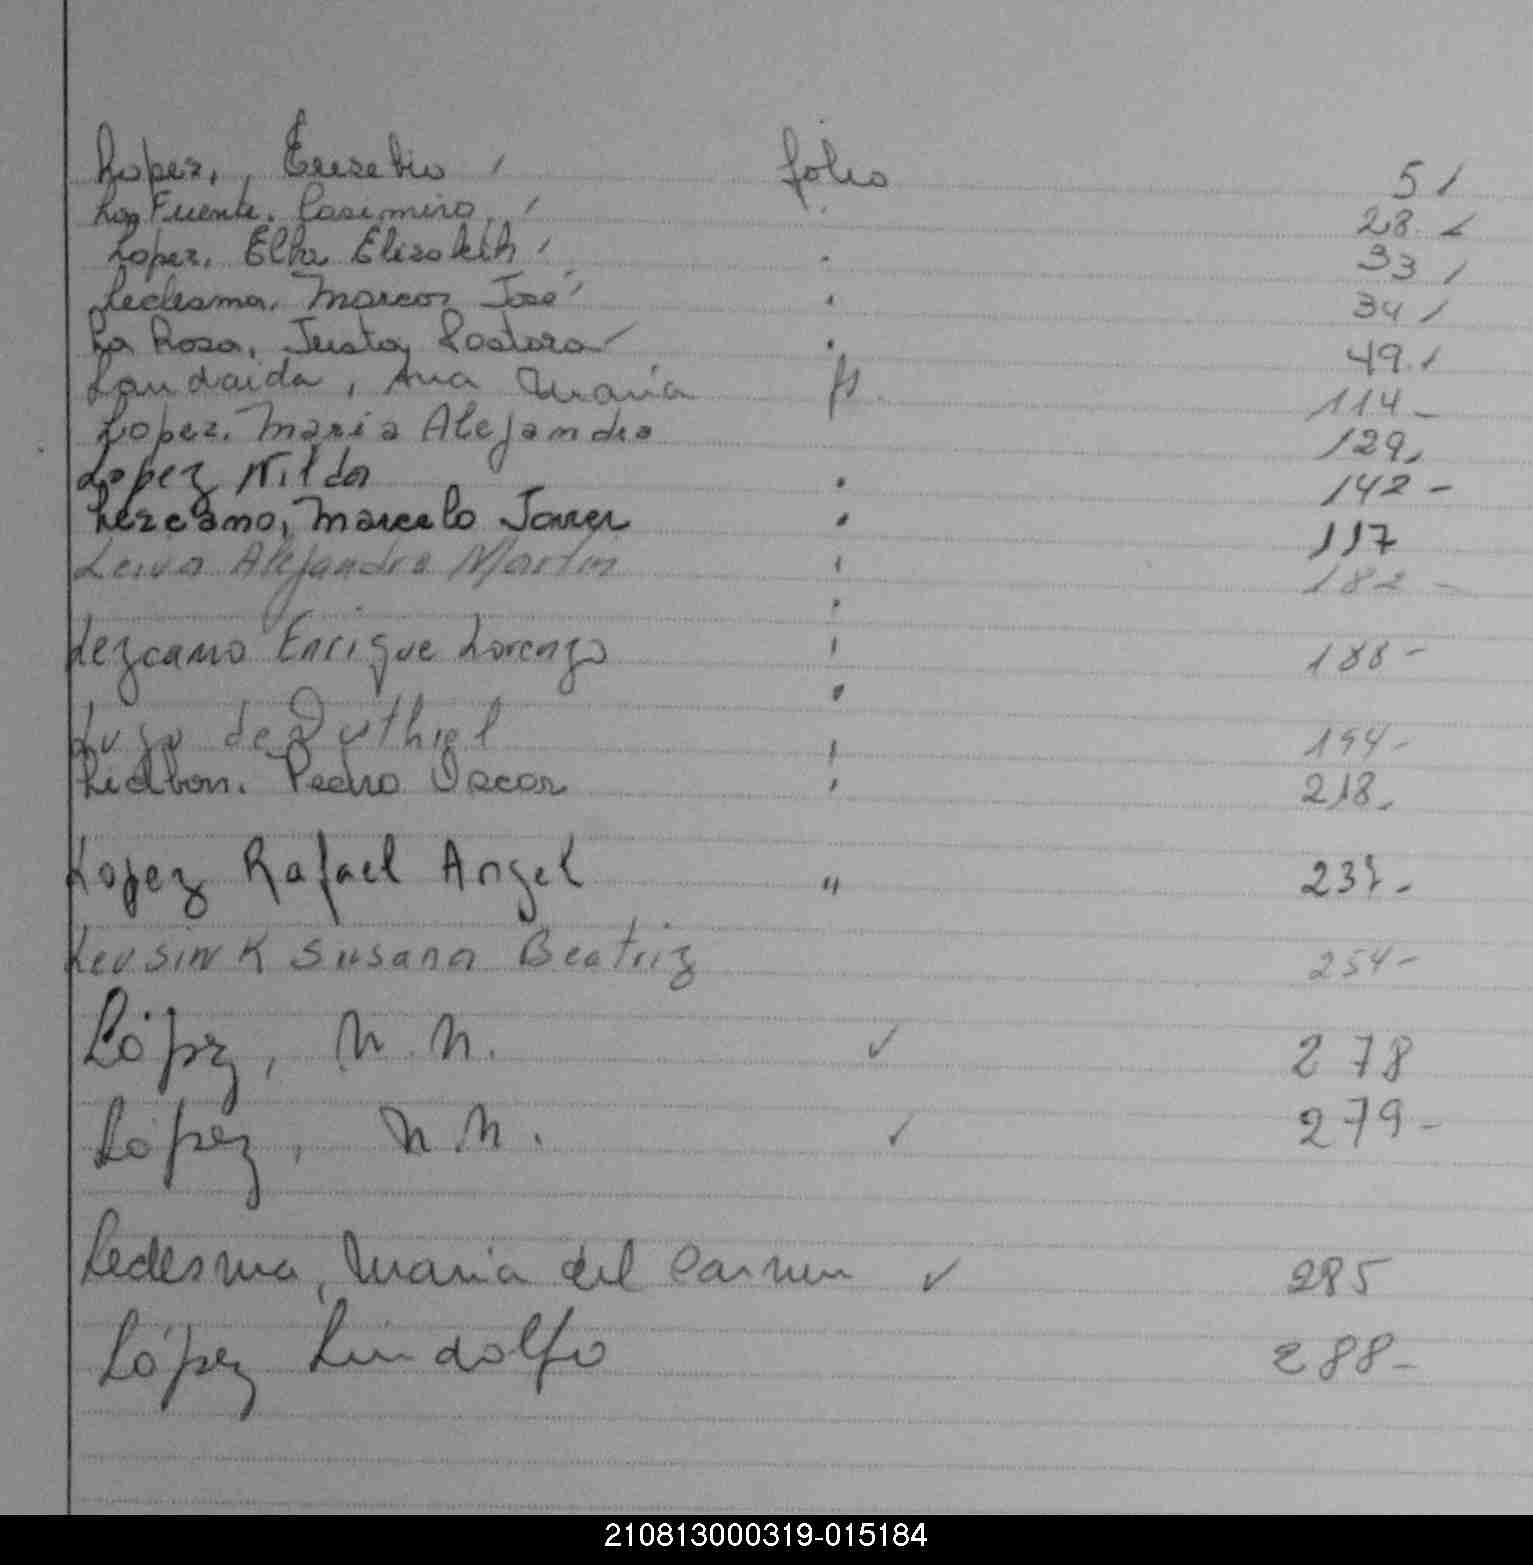 Lopez, Eusebio / folio 5 /
La Fuente. Casimiro, / 28. /
Lopez, Elba Elizabeth / 33 /
Ledesma, Marcos José / 34 /
La Rosa, Justa Pastora / 49. /
Landaida, Ana María fs. 114 -
Lopez, Maria Alejandra 129.
Lopez Nilda " 142 -
Lezcano, Marcelo Javier " 117
Leiva Alejandro Martin " 182 -
Lezcano Enrique Lorenzo " 188 -
Lugo de 194 -
Pedro Oscar " 218.
Lopez Rafael Angel " 237 -
Levsink Susana Beatriz 254 -
López, N. N. ✓ 278
López, N N. ✓ 279 -
Ledesma, María del Carmen ✓ 285
López Lindolfo 288 -
210813000319-015184